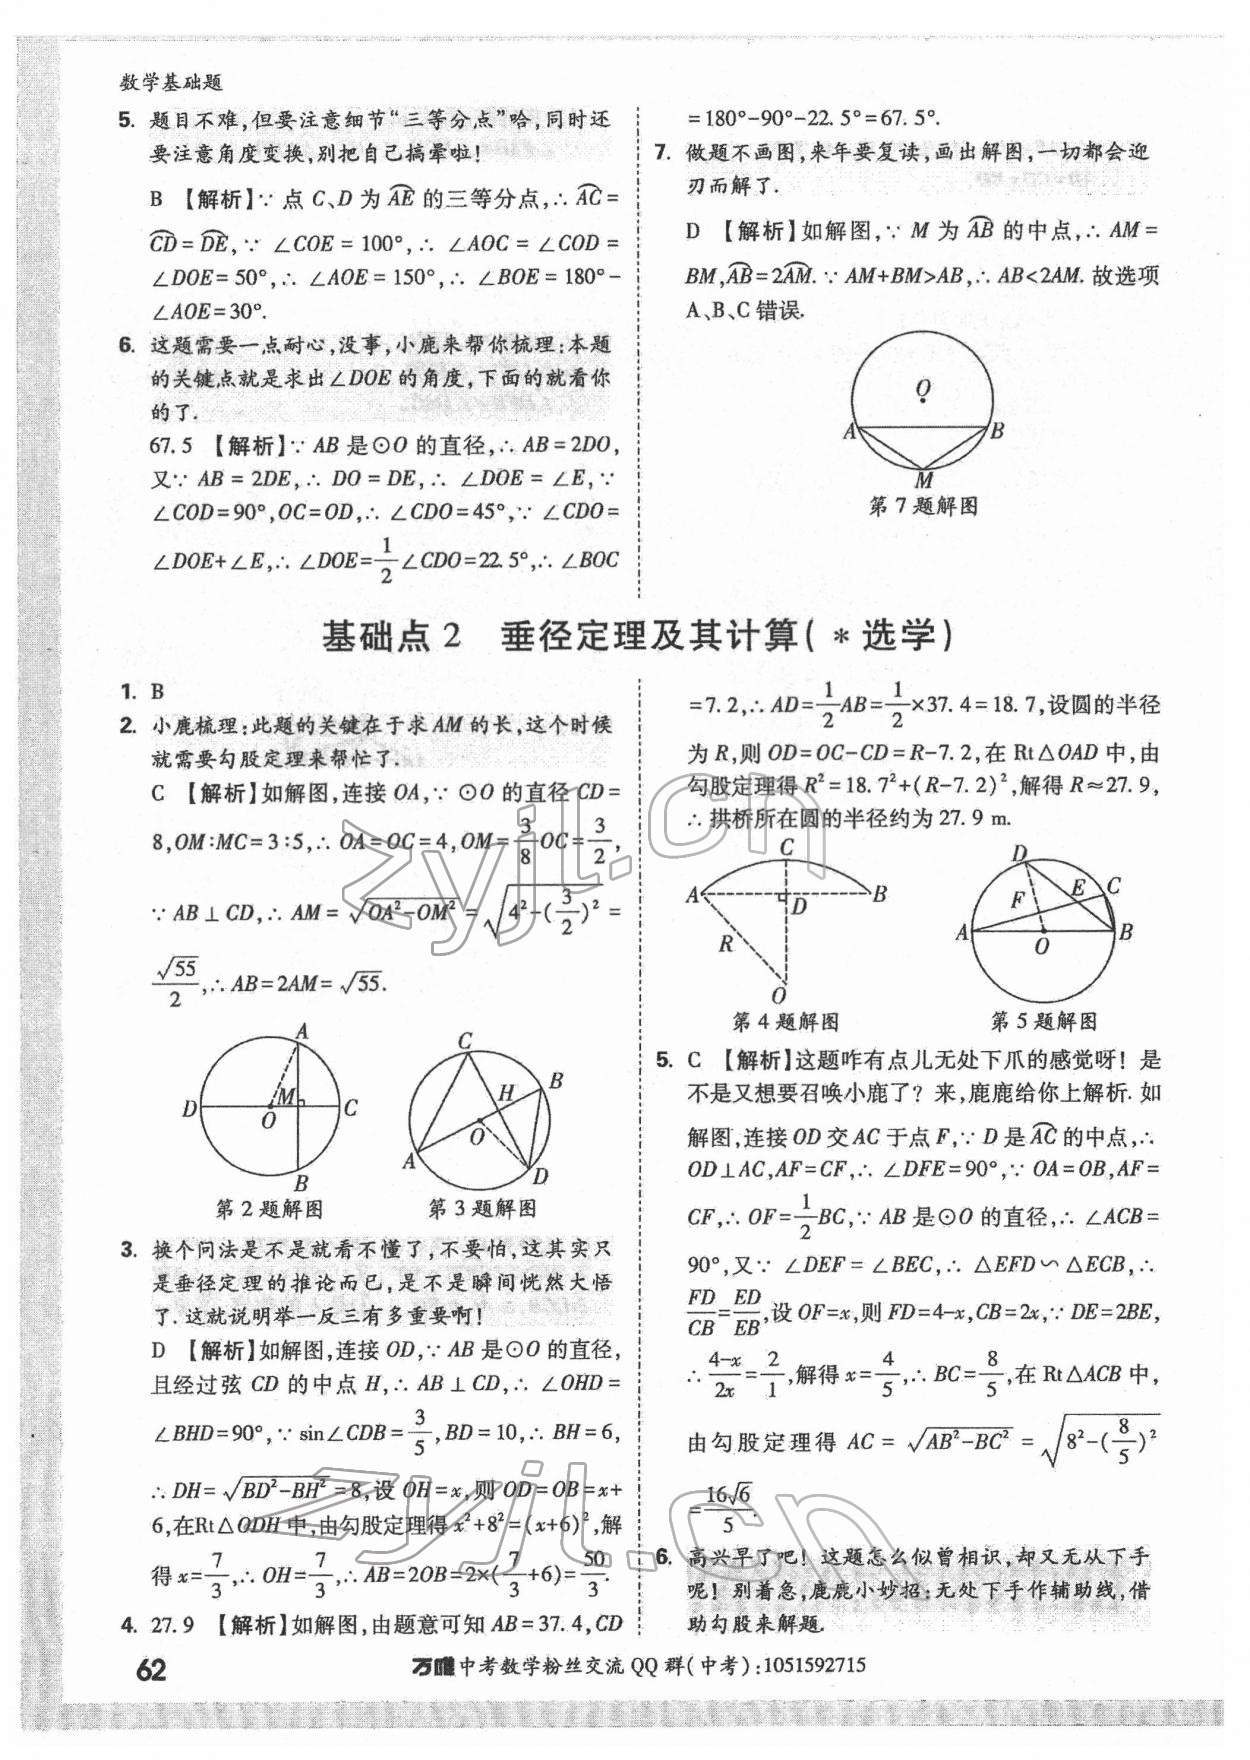 数学基础题
5. 题目不难,但要注意细节“三等分点”哈,同时还
要注意角度变换,别把自己搞晕啦!
B 【解析】∵ 点 C、D 为 A͡E 的三等分点,∴ A͡C =
C͡D = D͡E, ∵ ∠COE = 100°, ∴ ∠AOC = ∠COD =
∠DOE = 50°, ∴ ∠AOE = 150°, ∴ ∠BOE = 180°-
∠AOE=30°.
6. 这题需要一点耐心,没事,小鹿来帮你梳理:本题
的关键点就是求出∠DOE 的角度,下面的就看你
的了.
67.5 【解析】∵ AB 是⊙O 的直径,∴ AB=2DO,
又∵ AB = 2DE,∴ DO = DE,∴ ∠DOE = ∠E,∵
∠COD=90°,OC=OD,∴ ∠CDO=45°,∵ ∠CDO=
∠DOE+∠E,∴ ∠DOE=1/2∠CDO=22.5°,∴ ∠BOC
=180°-90°-22.5°=67.5°.
7. 做题不画图,来年要复读,画出解图,一切都会迎
刃而解了.
D 【解析】如解图,∵ M 为 A͡B 的中点,∴ AM =
BM,A͡B=2A͡M. ∵ AM+BM>AB,∴ AB<2AM. 故选项
A、B、C 错误.
O
A
B
M
第 7 题解图
基础点 2 垂径定理及其计算(*选学)
1. B
2. 小鹿梳理:此题的关键在于求 AM 的长,这个时候
就需要勾股定理来帮忙了.
C 【解析】如解图,连接 OA,∵ ⊙O 的直径 CD=
8,OM∶MC=3∶5,∴ OA=OC=4,OM=3/8OC=3/2,
∵ AB⊥CD,∴ AM = √(OA²-OM²) = √(4²-(3/2)²) =
√55/2,∴ AB=2AM=√55.
A
D
M
O
C
B
第 2 题解图
C
B
H
O
A
D
第 3 题解图
3. 换个问法是不是就看不懂了,不要怕,这其实只
是垂径定理的推论而已,是不是瞬间恍然大悟
了. 这就说明举一反三有多重要啊!
D 【解析】如解图,连接 OD,∵ AB 是⊙O 的直径,
且经过弦 CD 的中点 H,∴ AB⊥CD,∴ ∠OHD=
∠BHD=90°,∵ sin∠CDB=3/5,BD=10,∴ BH=6,
∴ DH=√(BD²-BH²)=8,设 OH=x,则 OD=OB=x+
6,在Rt△ODH 中,由勾股定理得 x²+8²=(x+6)²,解
得 x=7/3,∴ OH=7/3,∴ AB=2OB=2×(7/3+6)=50/3.
4. 27.9 【解析】如解图,由题意可知 AB=37.4,CD
=7.2,∴ AD=1/2AB=1/2×37.4=18.7,设圆的半径
为 R,则 OD=OC-CD=R-7.2,在 Rt△OAD 中,由
勾股定理得 R²=18.7²+(R-7.2)²,解得 R≈27.9,
∴ 拱桥所在圆的半径约为 27.9 m.
C
A
D
B
R
O
第 4 题解图
D
E
C
F
A
O
B
第 5 题解图
5. C 【解析】这题咋有点儿无处下爪的感觉呀! 是
不是又想要召唤小鹿了? 来,鹿鹿给你上解析. 如
解图,连接 OD 交 AC 于点 F,∵ D 是 A͡C 的中点,∴
OD⊥AC,AF=CF,∴ ∠DFE=90°,∵ OA=OB,AF=
CF,∴ OF=1/2BC,∵ AB 是⊙O 的直径,∴ ∠ACB=
90°,又∵ ∠DEF=∠BEC,∴ △EFD∽△ECB,∴
FD/CB=ED/EB,设 OF=x,则 FD=4-x,CB=2x,∵ DE=2BE,
∴ (4-x)/2x=2/1,解得 x=4/5,∴ BC=8/5,在 Rt△ACB 中,
由勾股定理得 AC = √(AB²-BC²) = √(8²-(8/5)²)
=16√6/5.
6. 高兴早了吧! 这题怎么似曾相识,却又无从下手
呢! 别着急,鹿鹿小妙招:无处下手作辅助线,借
助勾股来解题.
62
万唯中考数学粉丝交流 QQ 群(中考):1051592715
zyjl.cn
zyjl.cn